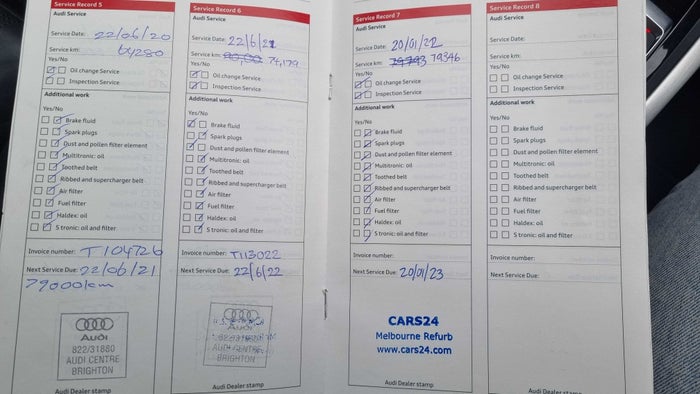 Service Record 5
Audi Service
Service Date: 22/06/20
Service km: 64280
Yes/No
Oil change Service
Inspection Service
Additional work
Yes/No
Brake fluid
Spark plugs
Dust and pollen filter element
Multitronic: oil
Toothed belt
Ribbed and supercharger belt
Air filter
Fuel filter
Haldex: oil
S tronic: oil and filter
Invoice number: T104726
Next Service Due: 22/06/21
79000km
Audi
822/31880
AUDI CENTRE
BRIGHTON
Audi Dealer stamp
Service Record 6
Audi Service
Service Date: 22/6/21
Service km: 74,179
Yes/No
Oil change Service
Inspection Service
Additional work
Yes/No
Brake fluid
Spark plugs
Dust and pollen filter element
Multitronic: oil
Toothed belt
Ribbed and supercharger belt
Air filter
Fuel filter
Haldex: oil
S tronic: oil and filter
Invoice number: T113022
Next Service Due: 22/6/22
Audi
AUDI CENTRE
BRIGHTON
Audi Dealer stamp
Service Record 7
Audi Service
Service Date: 20/01/22
Service km: 79346
Yes/No
Oil change Service
Inspection Service
Additional work
Yes/No
Brake fluid
Spark plugs
Dust and pollen filter element
Multitronic: oil
Toothed belt
Ribbed and supercharger belt
Air filter
Fuel filter
Haldex: oil
S tronic: oil and filter
Invoice number:
Next Service Due: 20/01/23
CARS24
Melbourne Refurb
www.cars24.com
Audi Dealer stamp
Service Record 8
Audi Service
Service Date:
Service km:
Yes/No
Oil change Service
Inspection Service
Additional work
Yes/No
Brake fluid
Spark plugs
Dust and pollen filter element
Multitronic: oil
Toothed belt
Ribbed and supercharger belt
Air filter
Fuel filter
Haldex: oil
S tronic: oil and filter
Invoice number:
Next Service Due:
Audi Dealer stamp